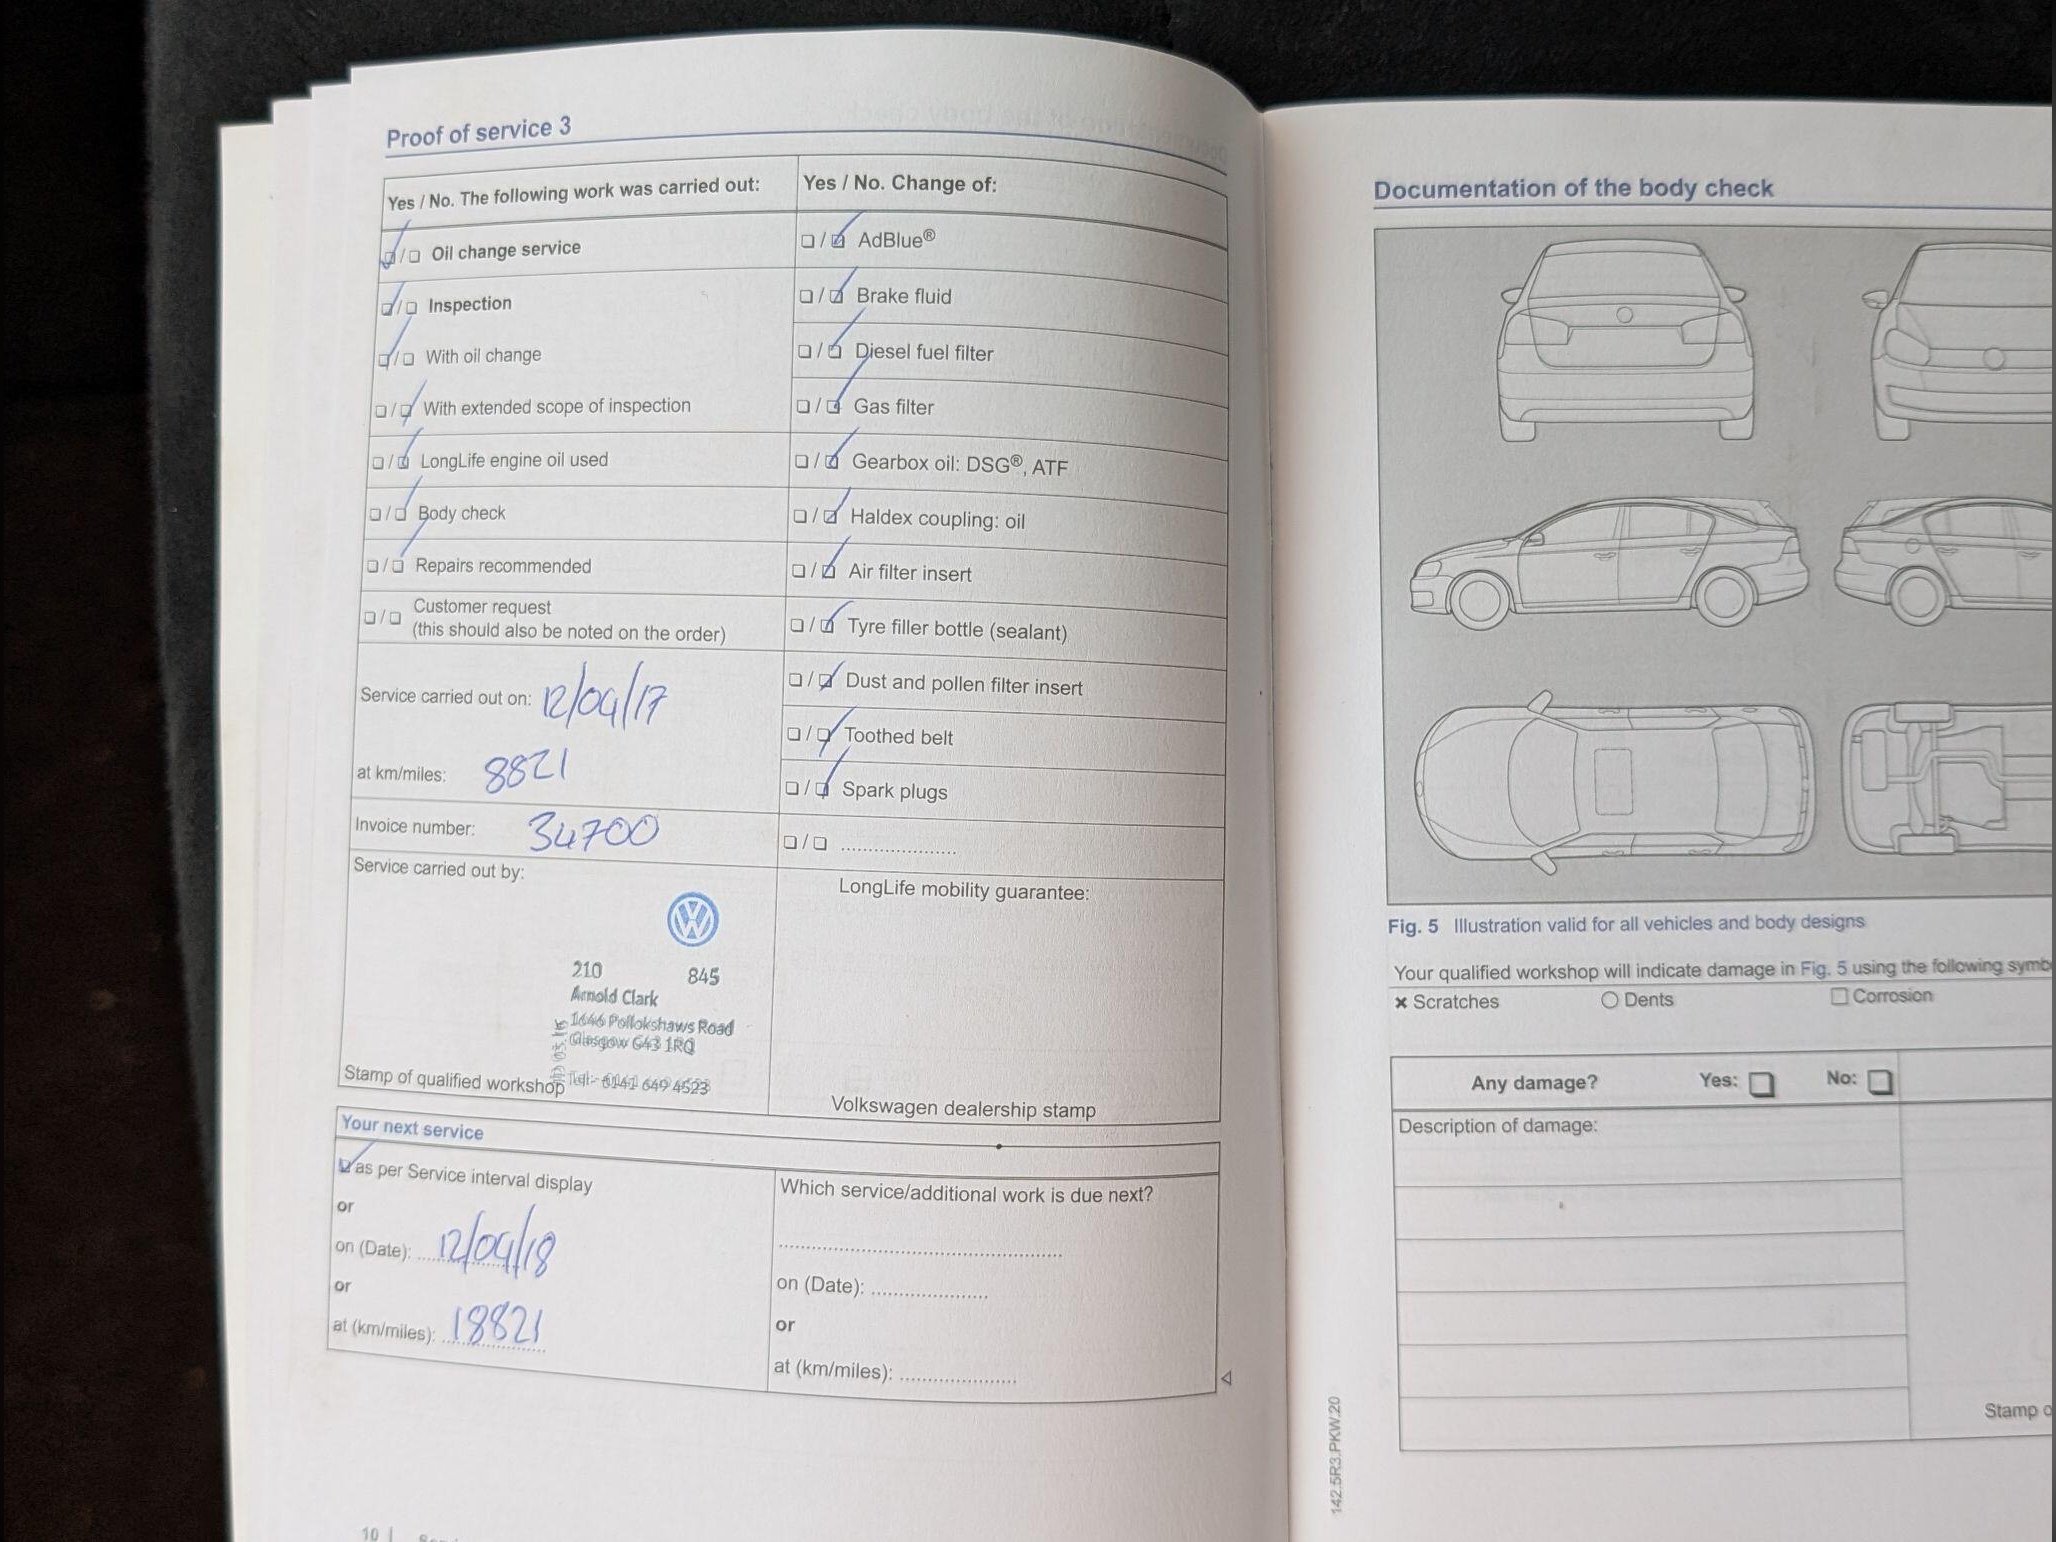 Proof of service 3
Yes / No. The following work was carried out:
Oil change service
Inspection
With oil change
With extended scope of inspection
LongLife engine oil used
Body check
Repairs recommended
Customer request
(this should also be noted on the order)
Service carried out on: 12/04/17
at km/miles: 8821
Invoice number: 34700
Service carried out by:
210 845
Arnold Clark
1646 Pollokshaws Road
Glasgow G43 1RQ
Tel:- 0141 649 4523
Stamp of qualified workshop
Yes / No. Change of:
AdBlue®
Brake fluid
Diesel fuel filter
Gas filter
Gearbox oil: DSG®, ATF
Haldex coupling: oil
Air filter insert
Tyre filler bottle (sealant)
Dust and pollen filter insert
Toothed belt
Spark plugs
LongLife mobility guarantee:
Volkswagen dealership stamp
Your next service
as per Service interval display
or
on (Date): 12/04/18
or
at (km/miles): 18821
Which service/additional work is due next?
on (Date):
or
at (km/miles):
10
Documentation of the body check
Fig. 5 Illustration valid for all vehicles and body designs
Your qualified workshop will indicate damage in Fig. 5 using the following
Scratches Dents Corrosion
Any damage? Yes: No:
Description of damage:
Stamp
142.5R3.PKW.20